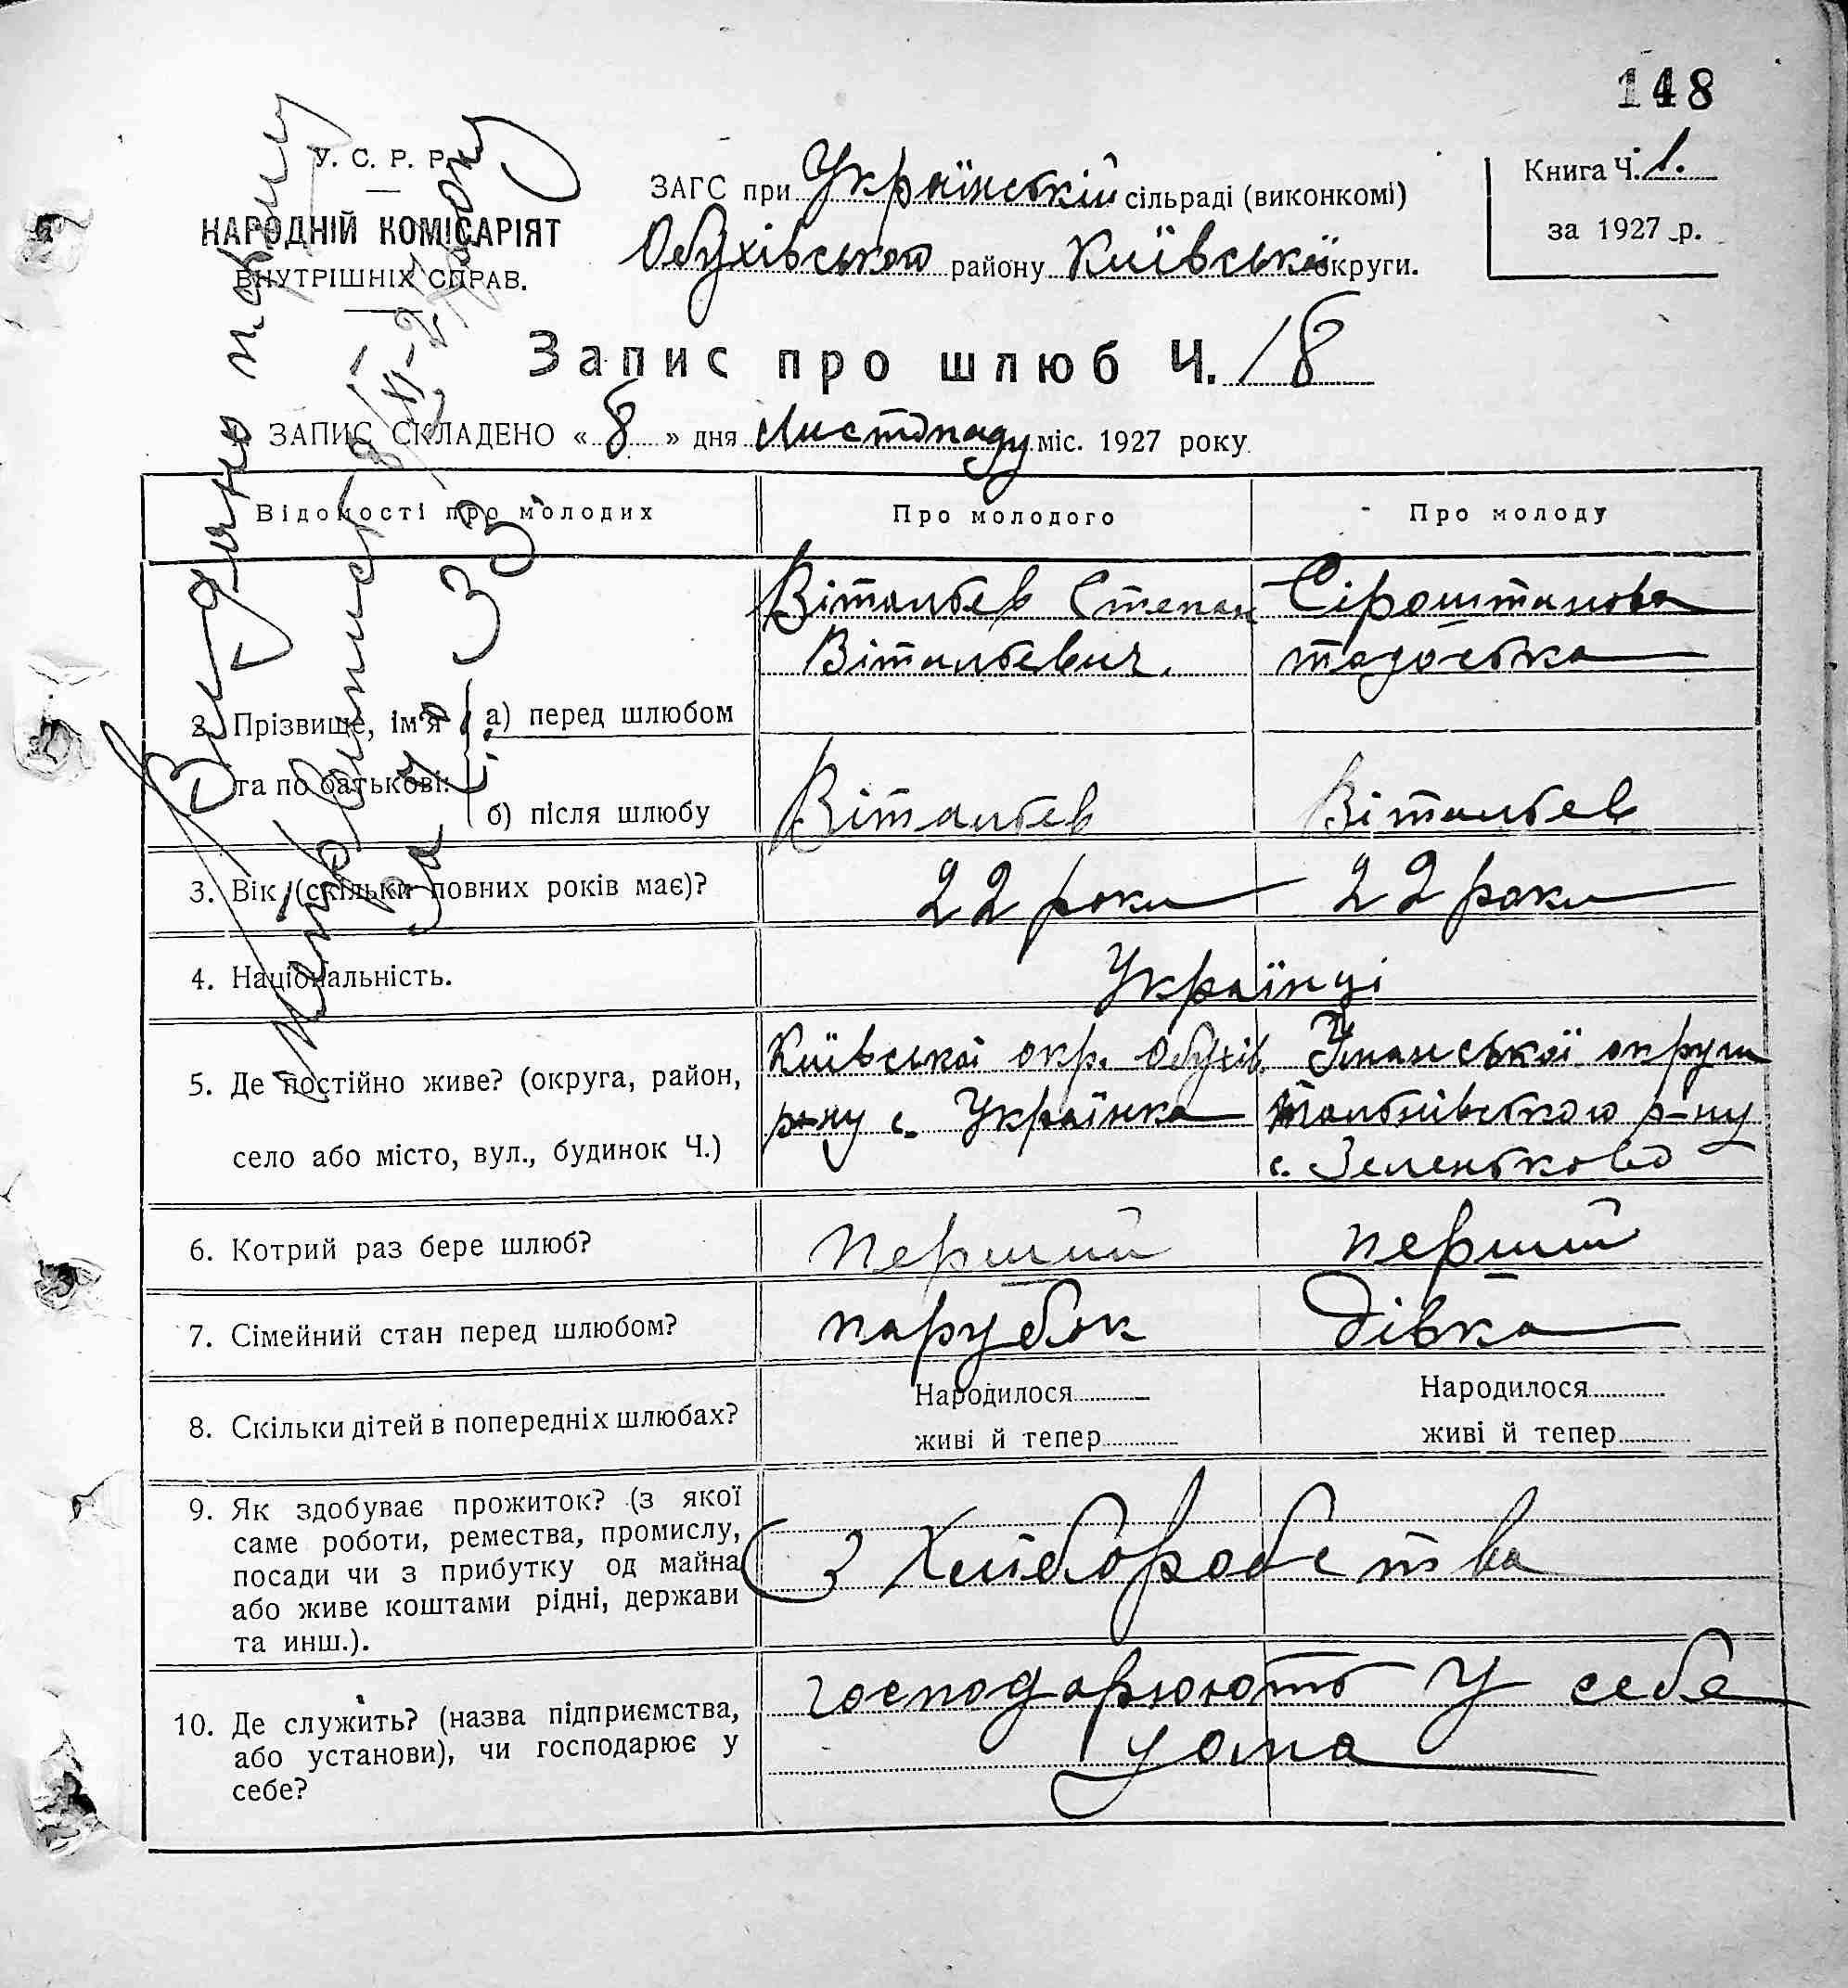 148
У. С. Р. Р.
НАРОДНІЙ КОМІСАРІЯТ
ВНУТРІШНІХ СПРАВ.
ЗАГС при Українській сільраді (виконкомі)
Обухівського району Київської округи.
Книга Ч. 1.
за 1927 р.
Запис про шлюб Ч. 18
ЗАПИС СКЛАДЕНО « 8 » дня Листопаду міс. 1927 року.
Видано
виписа
за № 33
Відомості про молодих
Про молодого
Про молоду
2. Прізвище, ім'я
та по батькові:
а) перед шлюбом
Вітальєв Степан
Вітальєвич.
Сіроштанова
б) після шлюбу
Вітальєв
Вітальєв
3. Вік (скільки повних років має)?
22 роки
22 роки
4. Національність.
Українці
5. Де постійно живе? (округа, район,
село або місто, вул., будинок Ч.)
Київської окр. Обухів.
р-ну с. Українка
Уманської округи
Тальнівського р-ну
с. Зеленьково
6. Котрий раз бере шлюб?
перший
перший
7. Сімейний стан перед шлюбом?
парубок
дівка
8. Скільки дітей в попередніх шлюбах?
Народилося
живі й тепер
Народилося
живі й тепер
9. Як здобуває прожиток? (з якої
саме роботи, ремества, промислу,
посади чи з прибутку од майна
або живе коштами рідні, держави
та инш.).
З Хліборобства
10. Де служить? (назва підприємства,
або установи), чи господарює у
себе?
господарюють у себе
дома